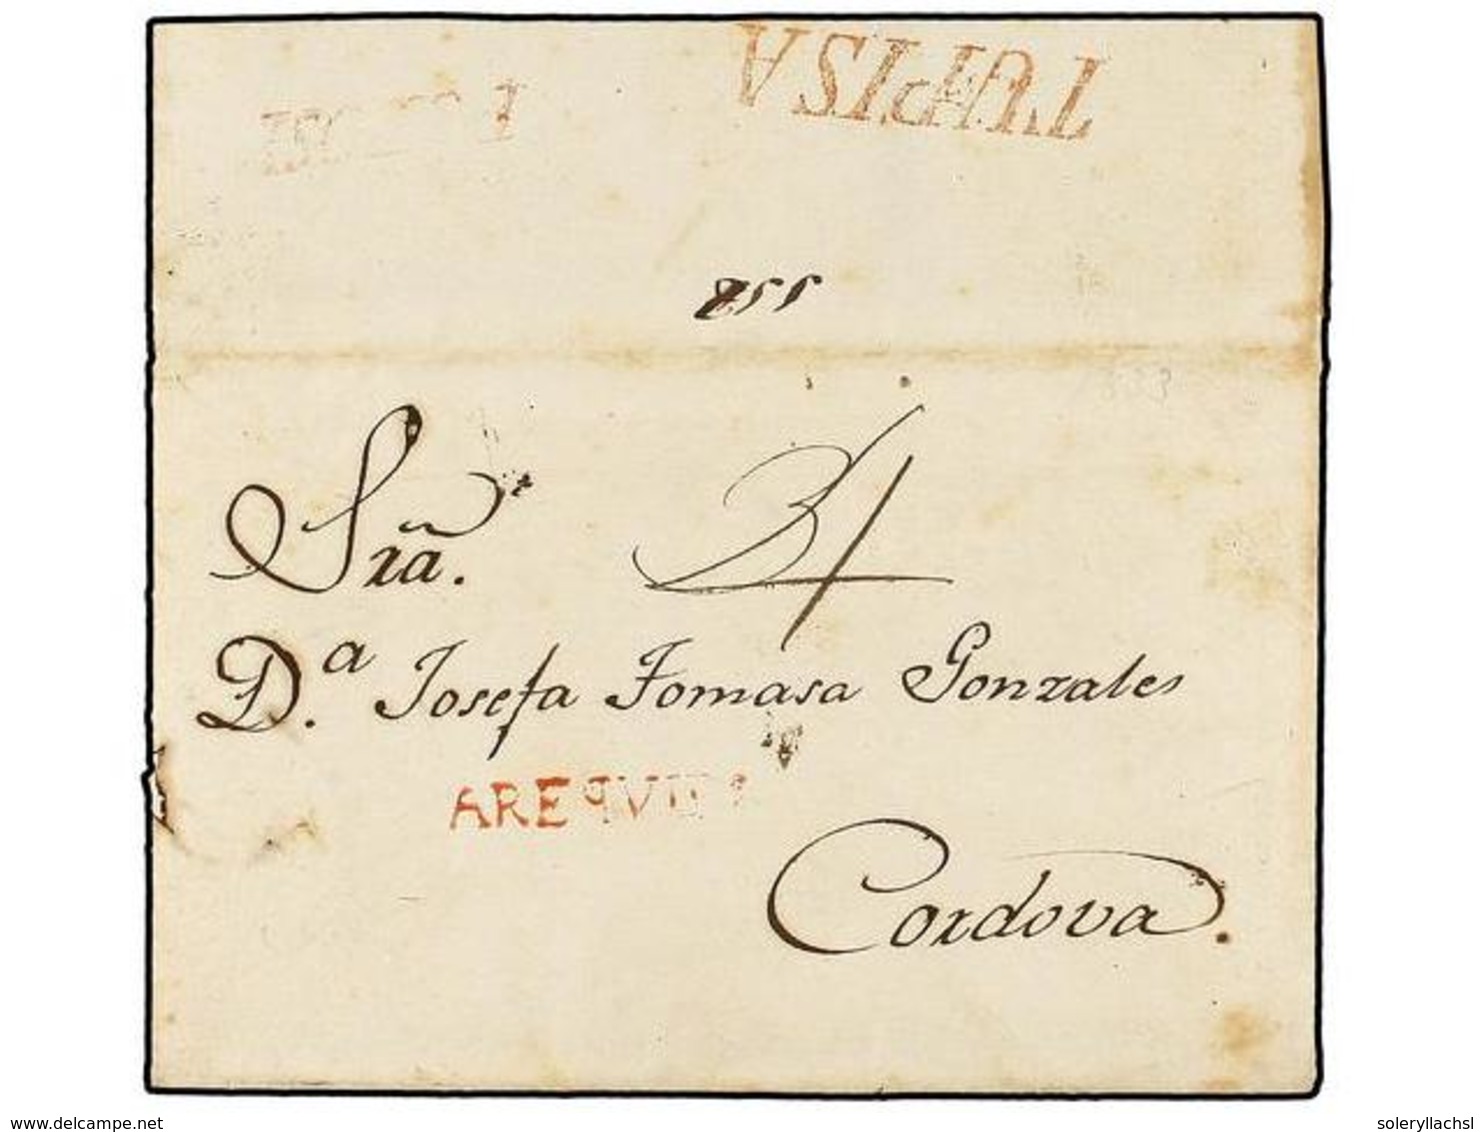 TUPISA
Sra.
D.a Josefa Tomasa Gonzales
AREQUIPA
Cordova.
www.delcampe.net
soleryllachsl